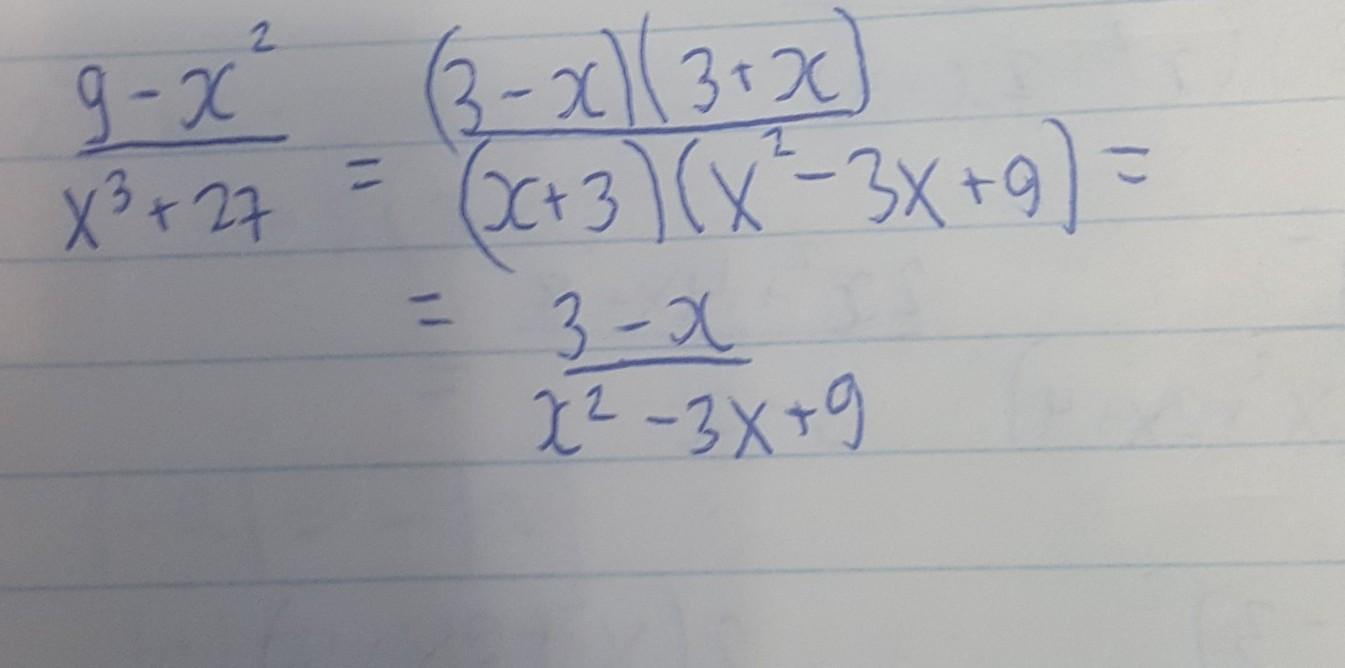 9-x² / x³+27 = (3-x)(3+x) / (x+3)(x²-3x+9) =
= 3-x / x²-3x+9